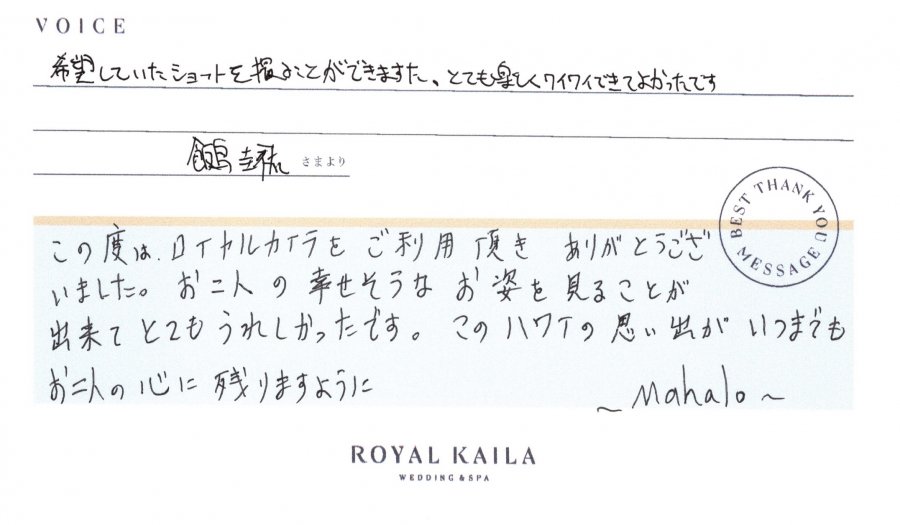 VOICE
希望していたショットを撮ることができますた、とても楽しくワイワイできてよかったです
さまより
BEST THANK YOU MESSAGE
この度は、ロイヤルカイラをご利用頂き ありがとうござ
いました。お二人の幸せそうなお姿を見ることが
出来てとてもうれしかったです。このハワイの思い出がいつまでも
お二人の心に残りますように
~Mahalo~
ROYAL KAILA
WEDDING & SPA